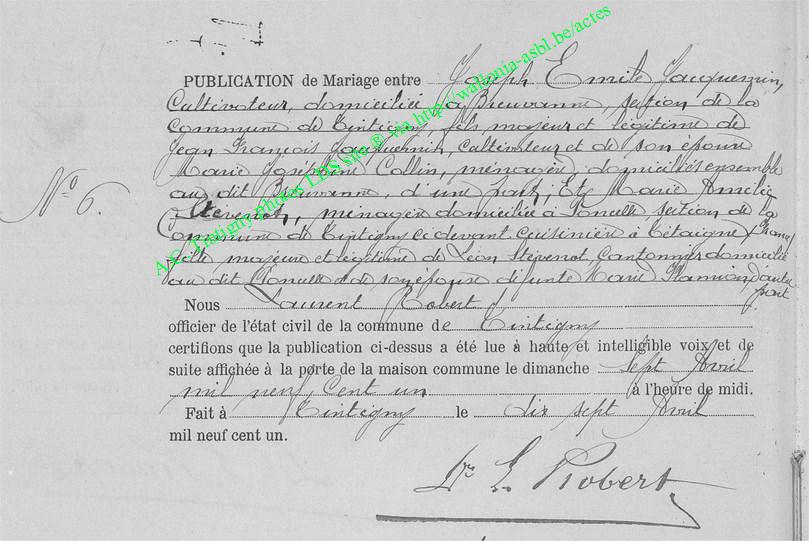 PUBLICATION de Mariage entre Joseph Emile Jacquemin,
Cultivateur, domicilié à Breuvanne, section de la
Commune de Tintigny, fils majeur et légitime de
Jean François Jacquemin, Cultivateur et de son épouse
Marie Joséphine Collin, ménagère domiciliés ensemble
au dit Breuvanne d'une part; Et Marie Amélie
Stévenot, ménagère domiciliée à Poncelle section de la
Commune de Tintigny ci devant cuisinière à Tétaigne (France)
fille majeure et légitime de Léon Stévenot, Cantonnier domicilié
au dit Poncelle et de son épouse défunte Marie d'autre
part
N° 6.
Nous Laurent Robert,
officier de l'état civil de la commune de Tintigny
certifions que la publication ci-dessus a été lue à haute et intelligible voix et de
suite affichée à la porte de la maison commune le dimanche sept Avril
mil neuf cent un à l'heure de midi.
Fait à Tintigny le dix sept Avril
mil neuf cent un.
Robert
A.C. Tintigny Photos LDS site @ via http://wallonia-asbl.be/actes